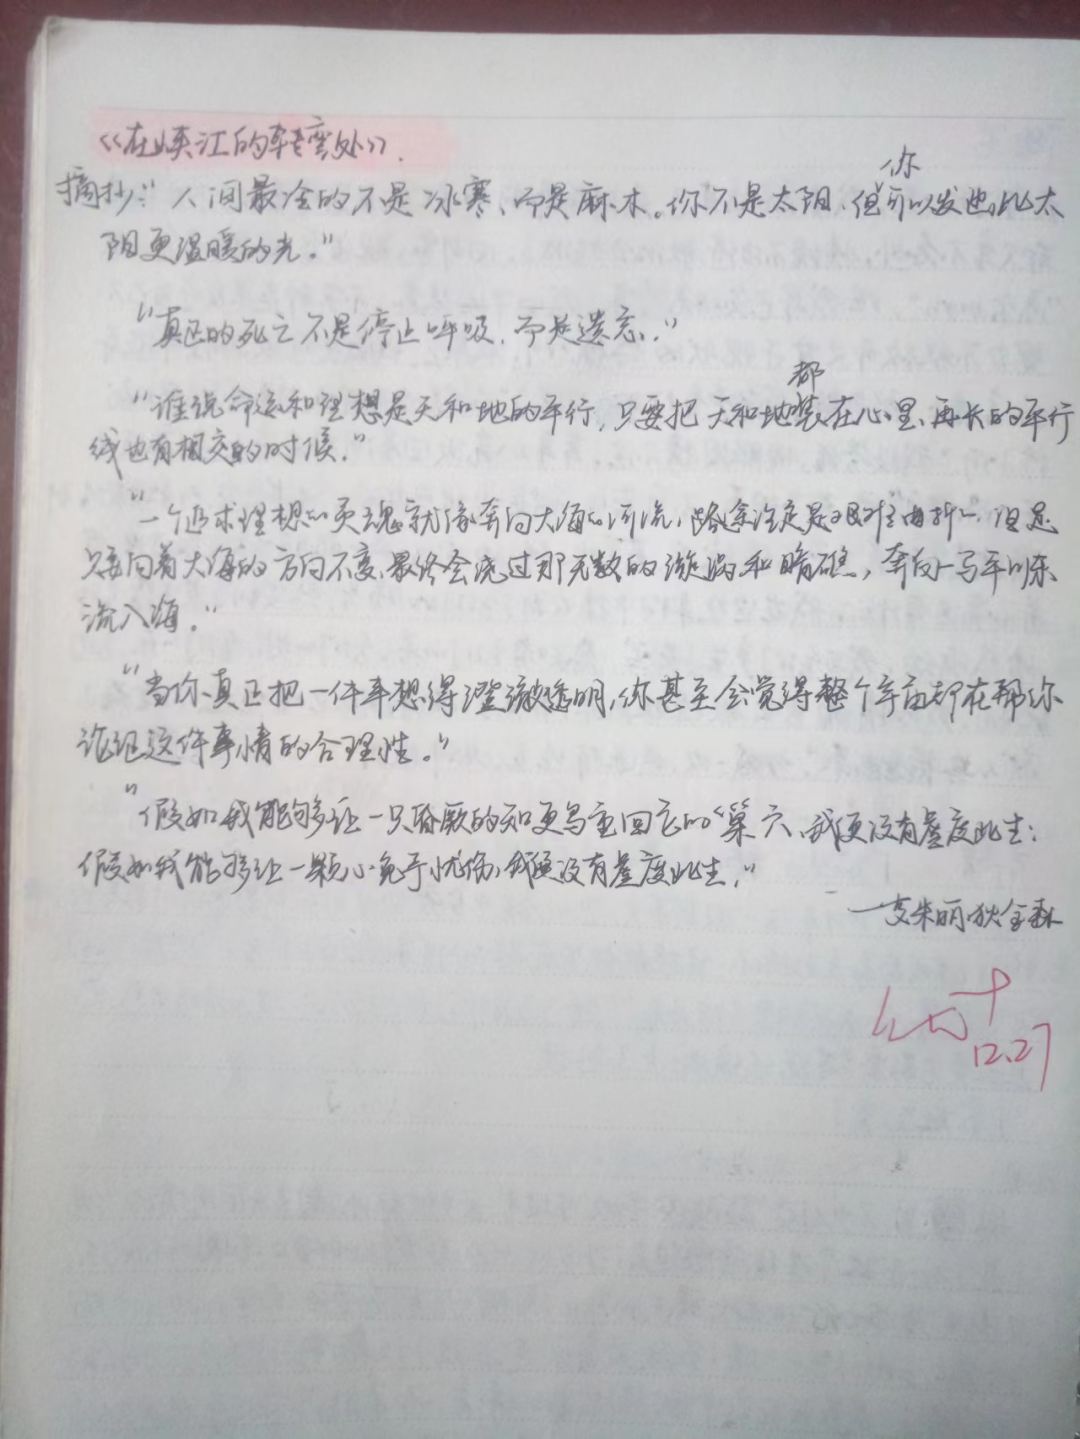 《在峡江的转弯处》.
摘抄:"人间最冷的不是冰寒、而是麻木。你不是太阳,但你可以发出比太
阳更温暖的光。"
"真正的死亡不是停止呼吸,而是遗忘."
"谁说命运和理想是天和地的平行,只要把天和地都装在心里,再长的平行
线也有相交的时候."
"一个追求理想的灵魂就像奔向大海的河流,路途注定是艰难曲折的,但是
只要向着大海的方向不变,最终会绕过那无数的漩涡和暗礁,奔向一马平川东
流入海."
"当你真正把一件事想得澄澈透明,你甚至会觉得整个宇宙都在帮你
论证这件事情的合理性."
"假如我能够让一只昏厥的知更鸟重回它的"巢穴,我便没有虚度此生;
假如我能够让一颗心免于忧伤,我便没有虚度此生."
—艾米丽·狄金森
12.27